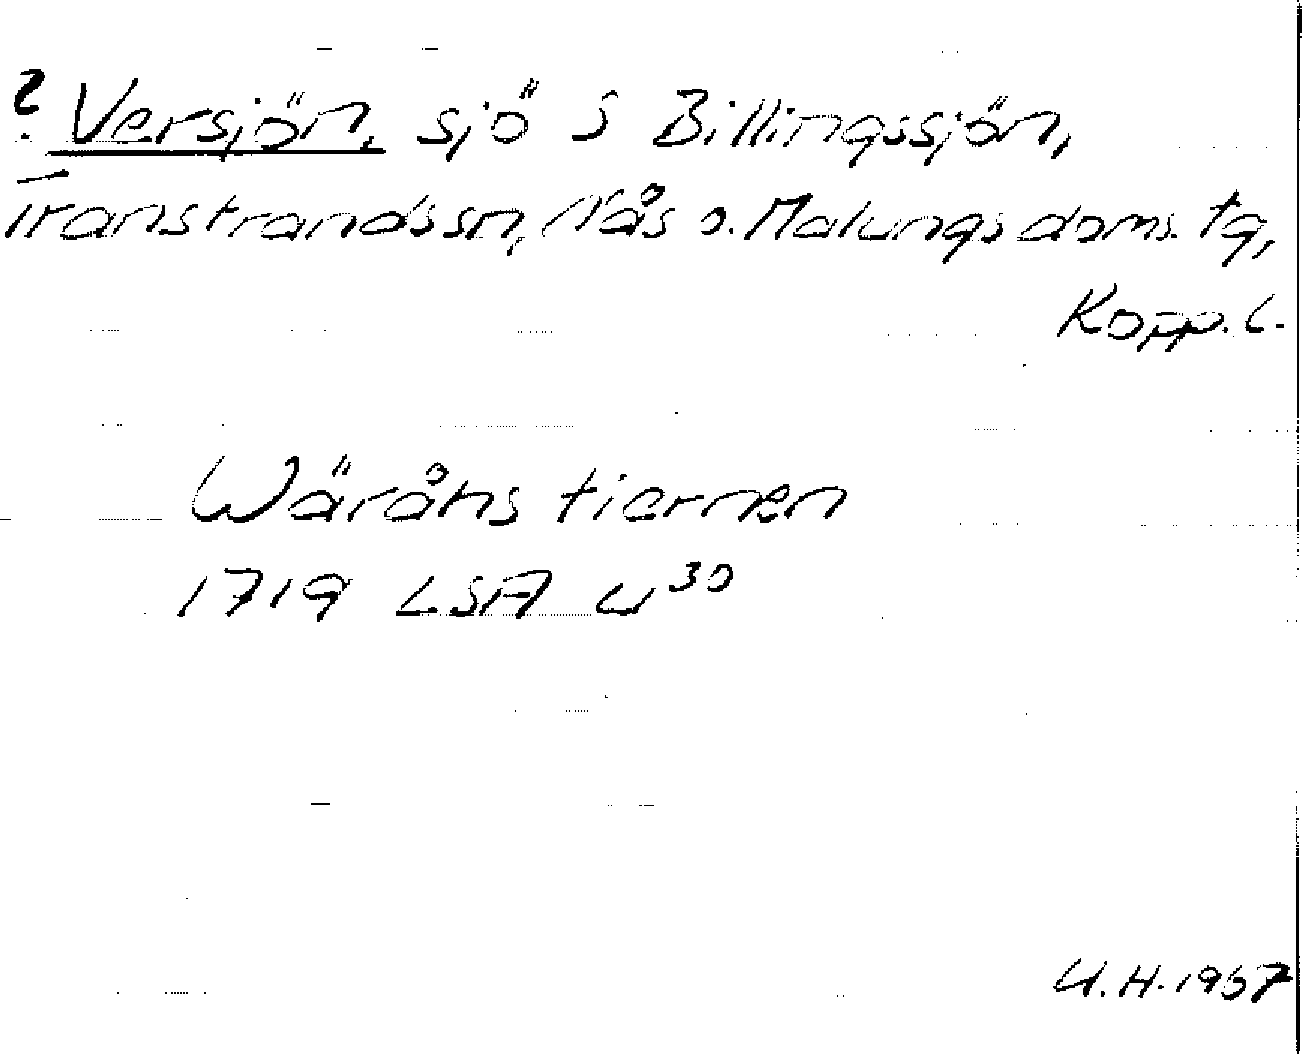 ? Versjön, sjö S Billingssjön,
Transtrands sn, Nås o. Malungs doms. tg,
Kopp. l.
Wäråhs tiernen
1719 LSA U³⁰
U.H. 1967